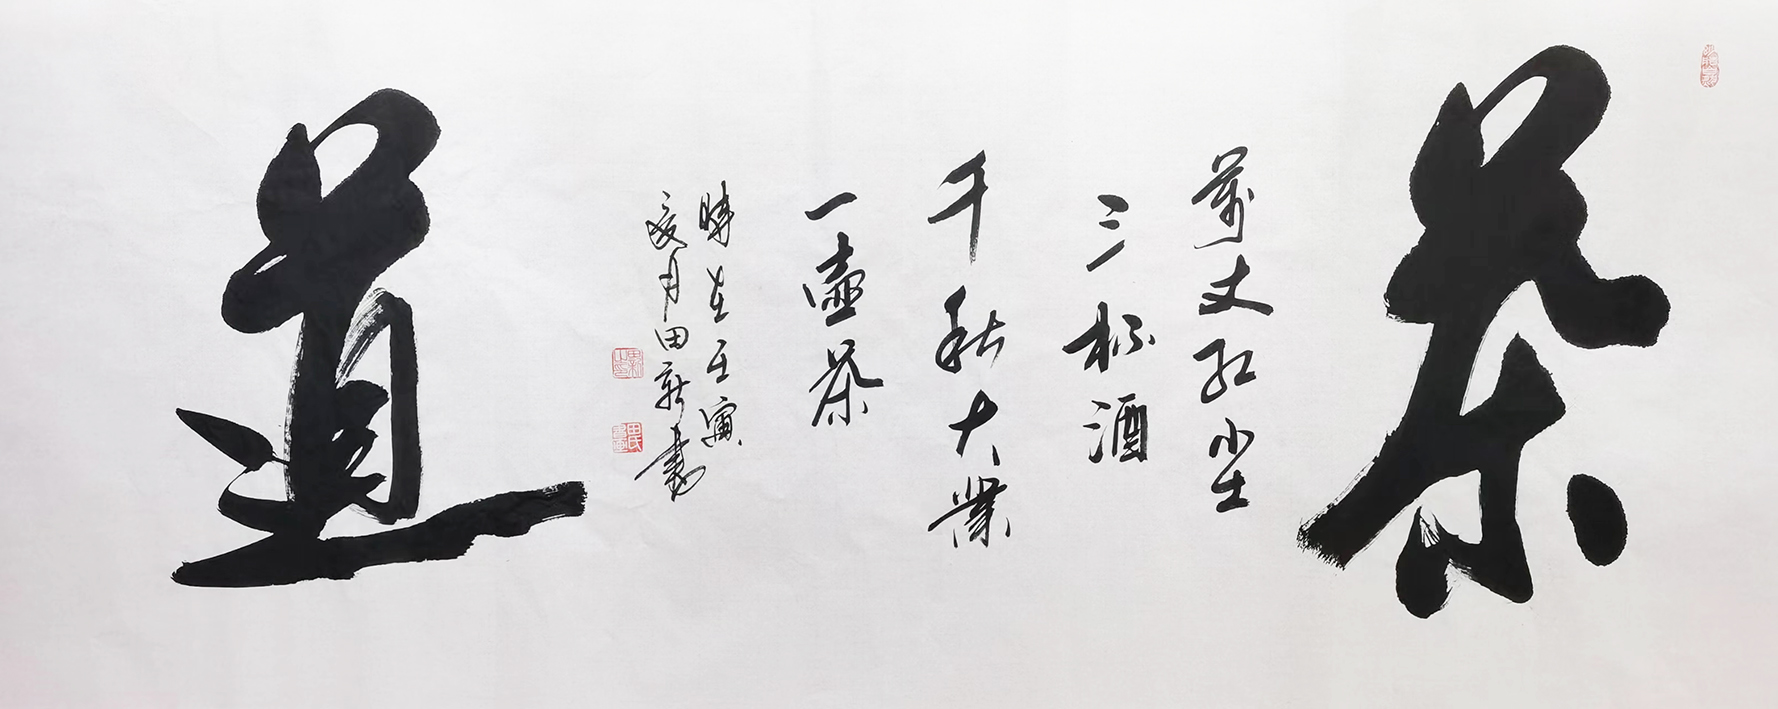 茶
萬丈红尘
三杯酒
千秋大業
一壶茶
時在壬寅
夏月田新書
道